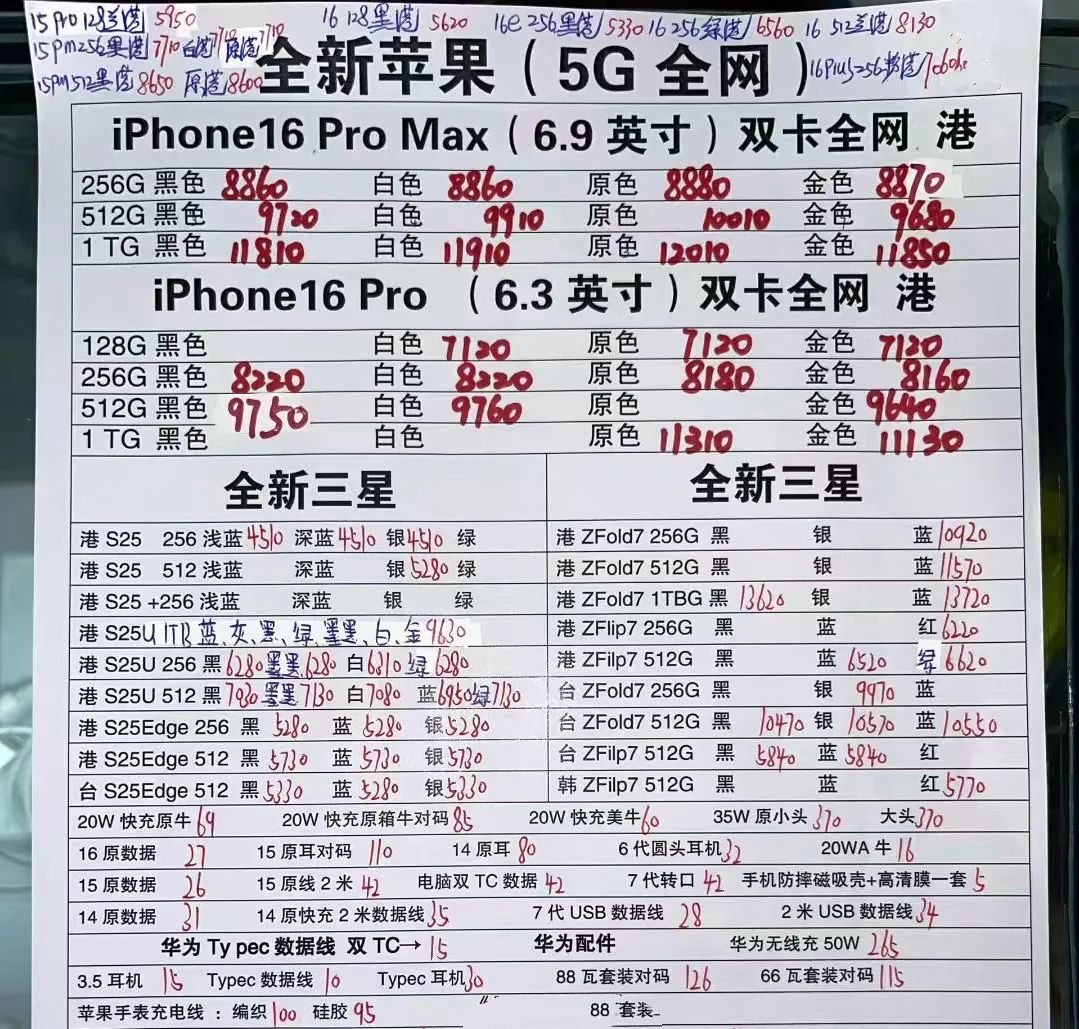 15Pro 128兰港 5950 16 128黑港 5620 16e 256黑港 5330 16 256绿港 6560 16 512兰港 8130
15pm256黑港 7710 白港 7710 原港 7710
15pm512黑港 8650 原港 8600 16Plus 256 港
全新苹果（5G 全网）
iPhone16 Pro Max（6.9 英寸）双卡全网 港
256G 黑色 8860 白色 8860 原色 8880 金色 8870
512G 黑色 9720 白色 9910 原色 10010 金色 9680
1 TG 黑色 11810 白色 11910 原色 12010 金色 11850
iPhone16 Pro （6.3 英寸）双卡全网 港
128G 黑色 白色 7120 原色 7120 金色 7120
256G 黑色 8220 白色 8220 原色 8180 金色 8160
512G 黑色 9750 白色 9760 原色 金色 9640
1 TG 黑色 白色 原色 11310 金色 11130
全新三星
港 S25 256 浅蓝 4510 深蓝 4510 银 4510 绿
港 S25 512 浅蓝 深蓝 银 5280 绿
港 S25 +256 浅蓝 深蓝 银 绿
港 S25U 1TB 蓝、灰、黑、绿、墨黑、白、金 9630
港 S25U 256 黑 6280 墨黑 6280 白 6310 绿 6280
港 S25U 512 黑 7030 墨黑 7130 白 7080 蓝 6950 绿 7130
港 S25Edge 256 黑 5280 蓝 5280 银 5280
港 S25Edge 512 黑 5730 蓝 5730 银 5730
台 S25Edge 512 黑 5330 蓝 5280 银 5330
全新三星
港 ZFold7 256G 黑 银 蓝 10920
港 ZFold7 512G 黑 银 蓝 11570
港 ZFold7 1TBG 黑 13620 银 蓝 13720
港 ZFlip7 256G 黑 蓝 红 6220
港 ZFilp7 512G 黑 蓝 6520 绿 6620
台 ZFold7 256G 黑 银 9970 蓝
台 ZFold7 512G 黑 10470 银 10570 蓝 10550
台 ZFilp7 512G 黑 5840 蓝 5840 红
韩 ZFilp7 512G 黑 蓝 红 5770
20W 快充原牛 69 20W 快充原箱牛对码 85 20W 快充美牛 60 35W 原小头 370 大头 370
16 原数据 27 15 原耳对码 110 14 原耳 80 6 代圆头耳机 32 20WA 牛 16
15 原数据 26 15 原线 2 米 42 电脑双 TC 数据 42 7 代转口 42 手机防摔磁吸壳+高清膜一套 5
14 原数据 31 14 原快充 2 米数据线 35 7 代 USB 数据线 28 2 米 USB 数据线 34
华为 Ty pec 数据线 双 TC→ 15 华为配件 华为无线充 50W 265
3.5 耳机 15 Typec 数据线 10 Typec 耳机 30 88 瓦套装对码 126 66 瓦套装对码 115
苹果手表充电线 ：编织 100 硅胶 95 88 套装